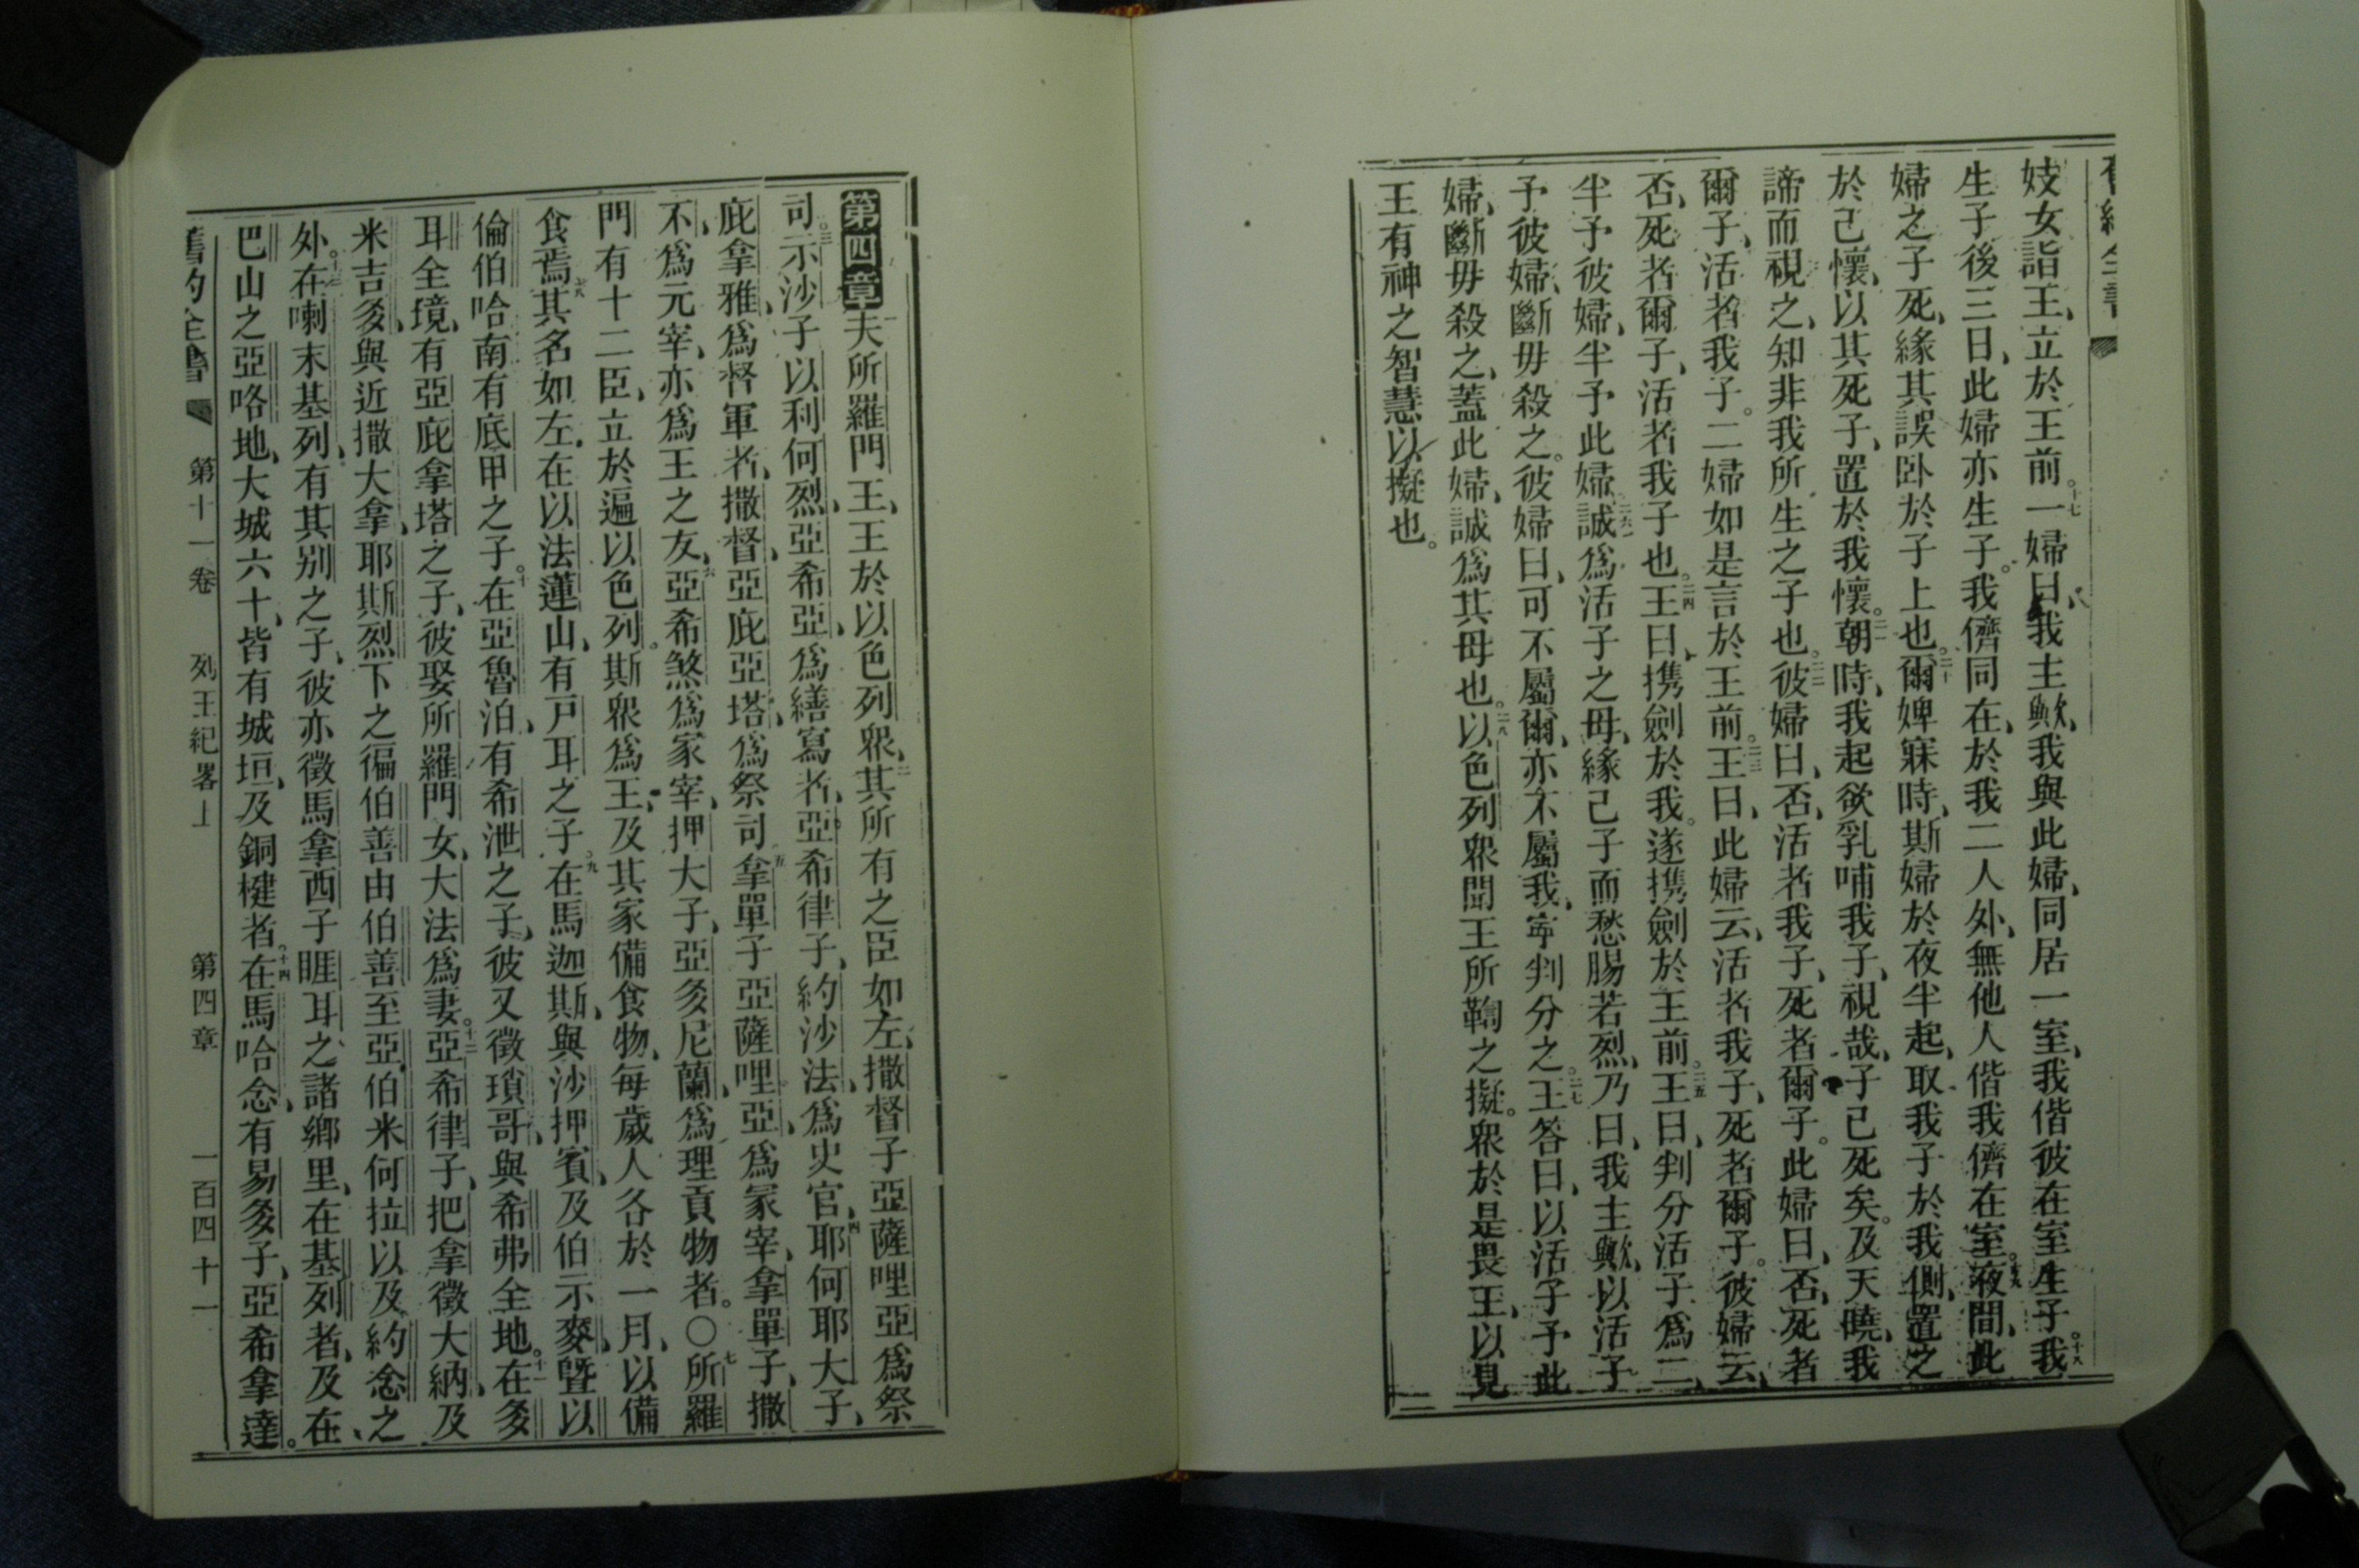 妓女詣王、立於王前。十七一婦曰、我主歟、我與此婦、同居一室、我偕彼在室生子。十八我
生子後三日、此婦亦生子。我儕同在、於我二人外、無他人偕我儕在室。十九夜間、此
婦之子死、緣其誤卧於子上也。二十爾婢寐時、斯婦於夜半起、取我子於我側、置之
於己懷、以其死子、置於我懷。二一朝時、我起欲乳哺我子、視哉、子已死矣。及天曉、我
諦而視之、知非我所生之子也。二二彼婦曰、否、活者我子、死者爾子。此婦曰、否、死者
爾子、活者我子。二婦如是言於王前。二三王曰、此婦云、活者我子、死者爾子。彼婦云、
否、死者爾子、活者我子也。二四王曰、携劍於我。遂携劍於王前。二五王曰、判分活子爲二、
半予彼婦、半予此婦。二六誠爲活子之母、緣己子而愁腸若烈、乃曰、我主歟、以活子
予彼婦、斷毋殺之。彼婦曰、可不屬爾、亦不屬我、寧判分之。二七王答曰、以活子予此
婦、斷毋殺之、蓋此婦、誠爲其母也。二八以色列衆聞王所鞫之擬。衆於是畏王、以見
王有神之智慧以擬也。
第四章 一夫所羅門王、王於以色列衆、二其所有之臣如左、撒督子亞薩哩亞爲祭
司。三示沙子以利何烈、亞希亞、爲繕寫者、亞希律子、約沙法、爲史官、四耶何耶大子、
庇拿雅、爲督軍者、撒督、亞庇亞塔、爲祭司、五拿單子亞薩哩亞、爲冢宰、拿單子、撒
不、爲元宰、亦爲王之友、六亞希煞爲家宰、押大子、亞多尼蘭、爲理貢物者。〇七所羅
門有十二臣、立於遍以色列。斯衆爲王、及其家備食物、每歲人各於一月、以備
食焉。八其名如左、在以法蓮山、有戸耳之子。九在馬迦斯、與沙押賓、及伯示麥、曁以
倫伯哈南有底甲之子。十在亞魯泊、有希泄之子、彼又徵瑣哥、與希弗全地。十一在多
耳全境、有亞庇拿塔之子、彼娶所羅門女、大法爲妻。十二亞希律子、把拿徵大納、及
米吉多、與近撒大拿、耶斯烈下之徧伯善由伯善至亞伯米何拉以及約念之
外。十三在喇末基列、有其别之子、彼亦徵馬拿西子睚耳之諸鄉里、在基列者、及在
巴山之亞咯地、大城六十、皆有城垣、及銅楗者。十四在馬哈念、有易多子、亞希拿達。
舊約全書 第十一卷 列王紀畧上 第四章 一百四十一